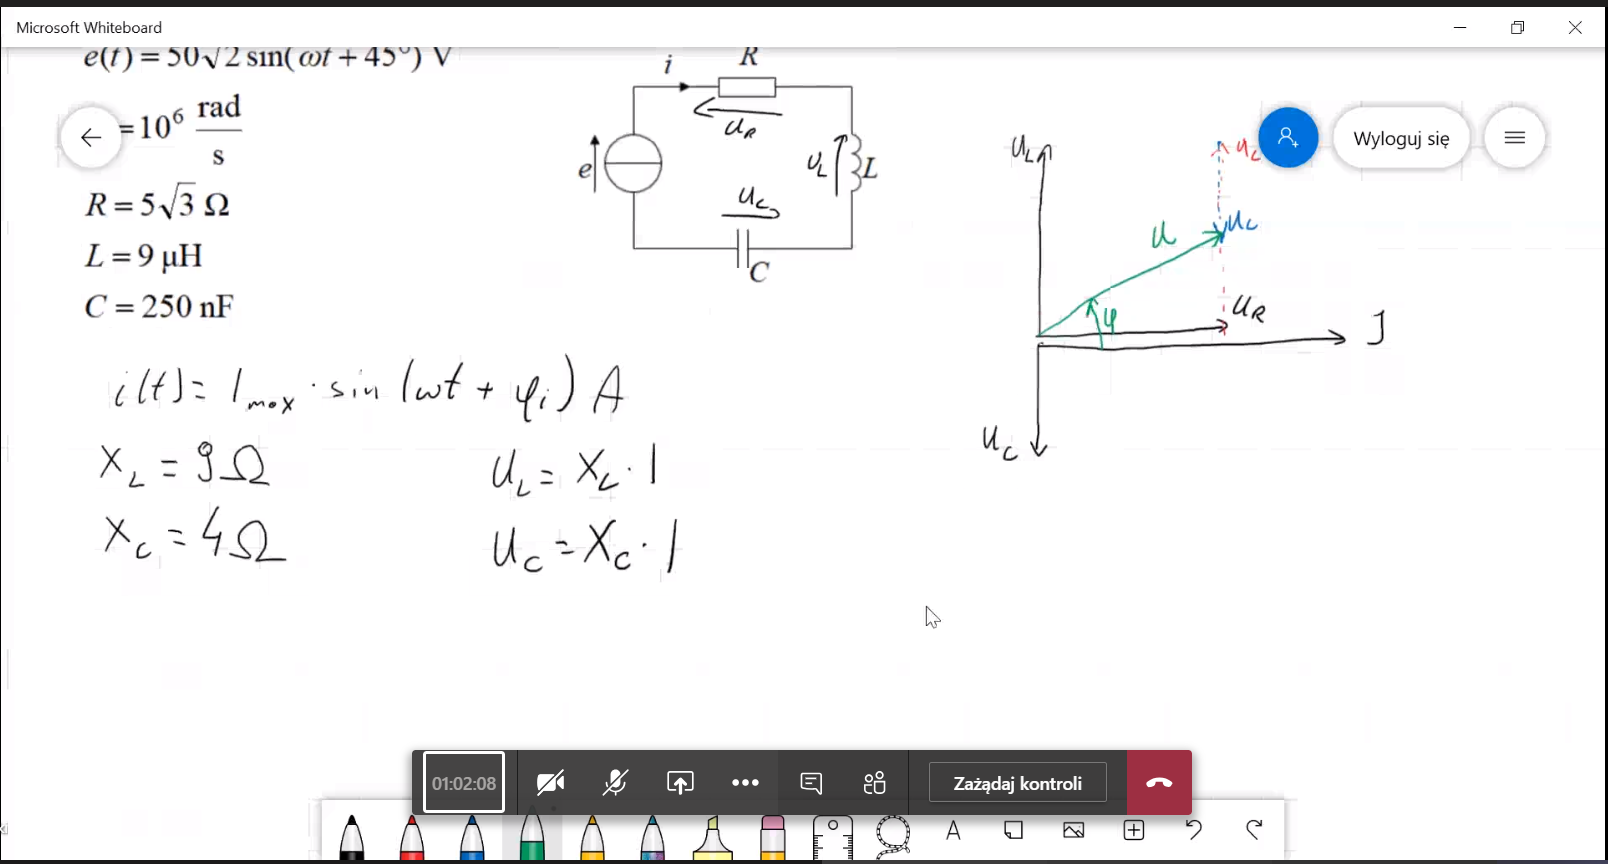 Microsoft Whiteboard
e(t) = 50√2 sin(ωt + 45°) V
=10⁶ rad/s
R = 5√3 Ω
L = 9 μH
C = 250 nF
i
R
u_R
e
u_L
L
u_C
C
u_L
u_L
Wyloguj się
u
u_C
u_R
φ
J
u_C
i(t) = I_max · sin(ωt + φ_i) A
X_L = 9 Ω
u_L = X_L · I
X_C = 4 Ω
u_C = X_C · I
01:02:08
Zażądaj kontroli
A